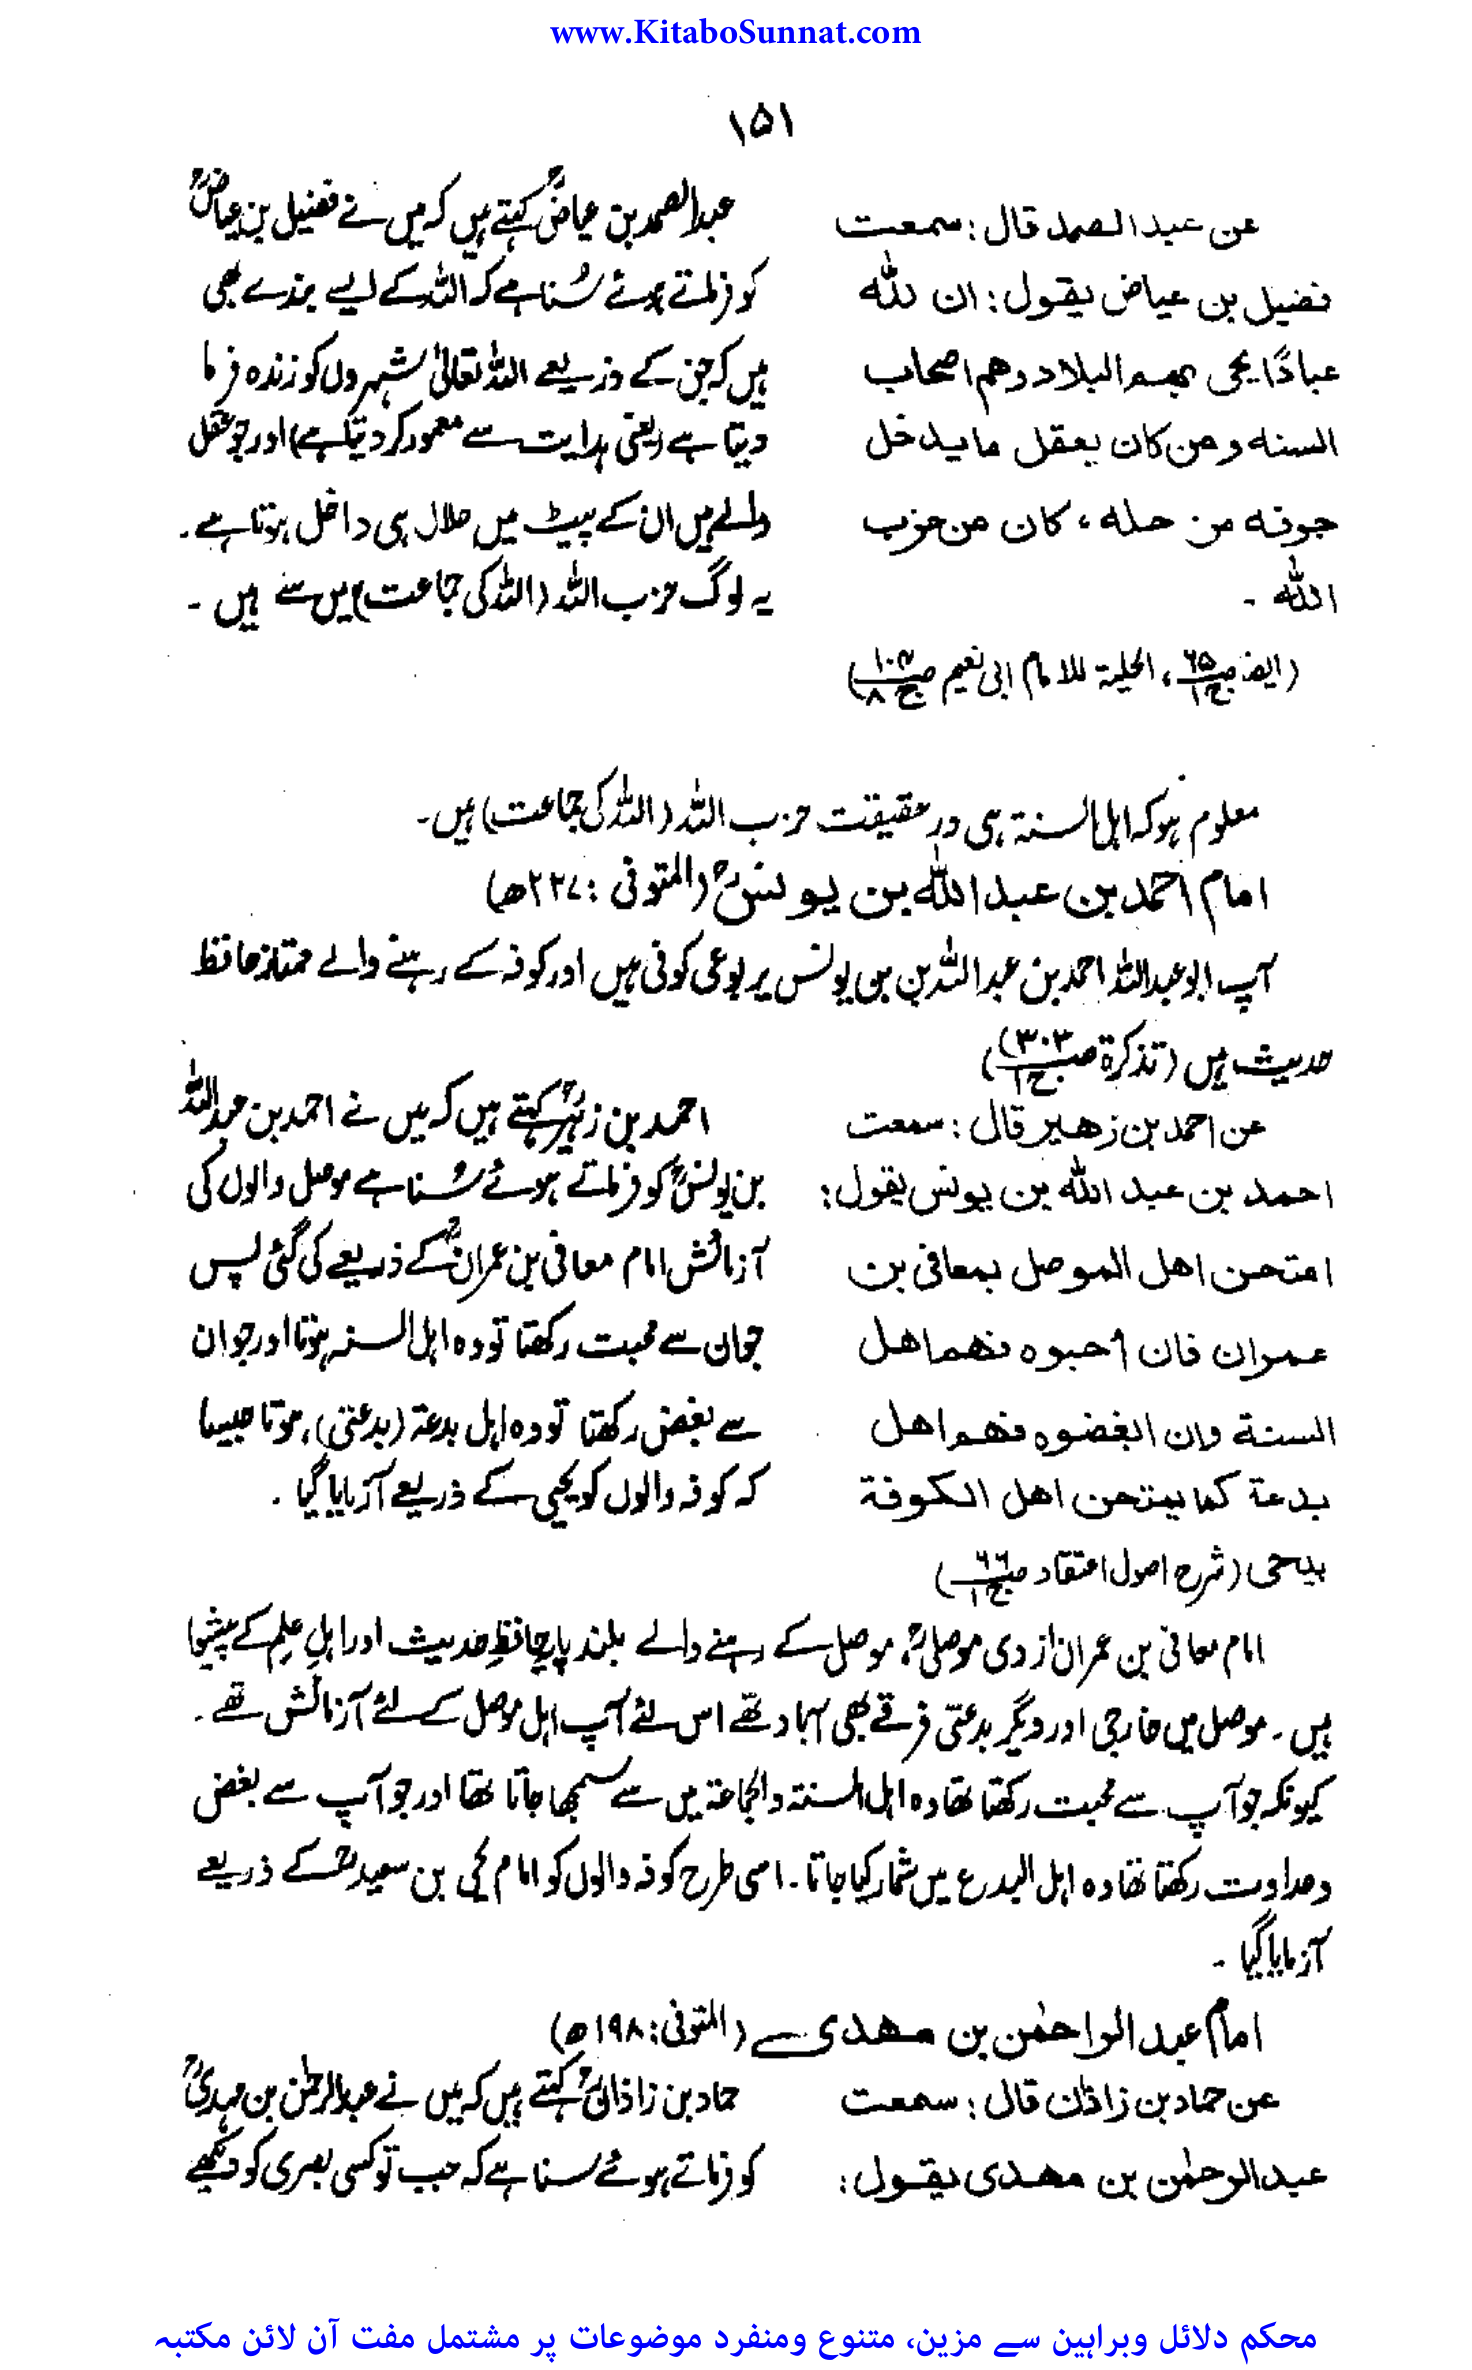 www.KitaboSunnat.com
۱۵۱
عن عبد الصمد قال: سمعت
فضيل بن عياض يقول: ان لله
عبادًا يحى بهم البلاد وهم اصحاب
السنه ومن كان يعقل ما يدخل
جوفه من حله، كان من حزب
الله ۔
عبدالصمد بن عیاضؒ کہتے ہیں کہ میں نے فضیل بن عیاضؒ
کو فرماتے ہوئے سُنا ہے کہ اللہ کے ایسے بندے بھی
ہیں کہ جن کے ذریعے اللہ تعالیٰ شہروں کو زندہ فرما
دیتا ہے (یعنی ہدایت سے معمور کر دیتا ہے) اور جو عقل
والے ہیں ان کے پیٹ میں حلال ہی داخل ہوتا ہے۔
یہ لوگ حزب اللہ (اللہ کی جماعت) میں سے ہیں ۔
(ایضًا ص۶۵ ج۱، الحلیۃ للامام ابی نعیم ص۱۰۴ ج۸)
معلوم ہو کہ اہل السنۃ ہی در حقیقت حزب اللہ (اللہ کی جماعت) ہیں۔
امام احمد بن عبد اللہ بن یونسؒ (المتوفی : ۲۲۷ھ)
آپ ابو عبداللہ احمد بن عبداللہ بن یونس یربوعی کوفی ہیں اور کوفہ کے رہنے والے ممتاز حافظ
حدیث ہیں (تذکرۃ ص۳۰۳ ج۱)
عن احمد بن زهير قال: سمعت
احمد بن عبد الله بن يونس يقول:
امتحن اهل الموصل بمعافى بن
عمران فان أحبوه فهم اهل
السنة وان ابغضوه فهم اهل
بدعة كما يمتحن اهل الكوفة
بيحى (شرح اصول اعتقاد ص۶۶ ج۱)
احمد بن زہیرؒ کہتے ہیں کہ میں نے احمد بن عبداللہ
بن یونسؒ کو فرماتے ہوئے سُنا ہے موصل والوں کی
آزمائش امام معافی بن عمرانؒ کے ذریعے کی گئی پس
جو ان سے محبت رکھتا تو وہ اہل السنہ ہوتا اور جو ان
سے بغض رکھتا تو وہ اہل بدعۃ (بدعتی) ہوتا جیسا
کہ کوفہ والوں کو یحییٰ کے ذریعے آزمایا گیا ۔
امام معافی بن عمران ازدی موصلیؒ، موصل کے رہنے والے بلند پایہ حافظِ حدیث اور اہلِ علم کے پیشوا
ہیں۔ موصل میں خارجی اور دیگر بدعتی فرقے بھی آباد تھے اس لئے آپ اہل موصل کے لئے آزمائش تھے ۔
کیونکہ جو آپ سے محبت رکھتا تھا وہ اہل السنۃ والجماعۃ میں سے سمجھا جاتا تھا اور جو آپ سے بغض
وعداوت رکھتا تھا وہ اہل البدع میں شمار کیا جاتا ۔ اسی طرح کوفہ والوں کو امام یحیٰ بن سعیدؒ کے ذریعے
آزمایا گیا ۔
امام عبد الراحمٰن بن مھدی ؒ (المتوفی: ۱۹۸ھ)
عن حماد بن زاذان قال: سمعت
عبد الرحمٰن بن مهدى يقول:
حماد بن زاذانؒ کہتے ہیں کہ میں نے عبدالرحمٰن بن مہدیؒ
کو فرماتے ہوئے سنا ہے کہ جب تو کسی بصری کو دیکھے
محکم دلائل وبراہین سے مزین، متنوع ومنفرد موضوعات پر مشتمل مفت آن لائن مکتبہ